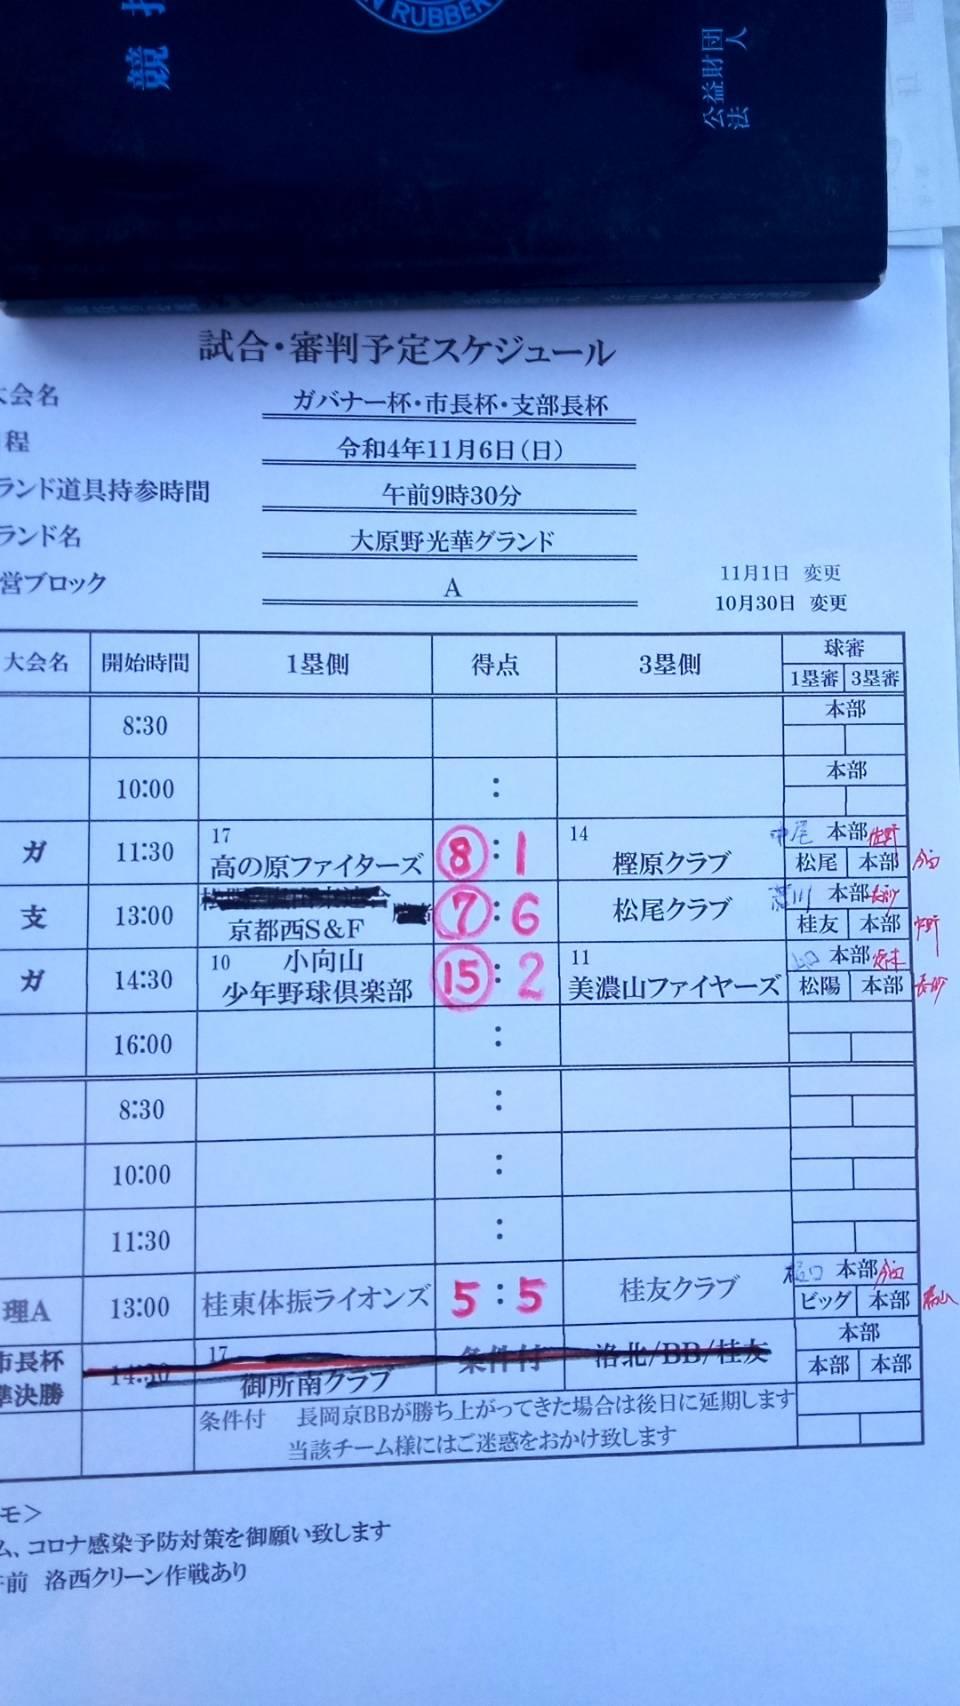 競技
N RUBBER
公益財団
法人
試合・審判予定スケジュール
大会名 ガバナー杯・市長杯・支部長杯
程 令和4年11月6日(日)
ランド道具持参時間 午前9時30分
ランド名 大原野光華グランド
営ブロック A
11月1日 変更
10月30日 変更
大会名 開始時間 1塁側 得点 3塁側 球審
1塁審 3塁審
8:30 本部
10:00 : 本部
ガ 11:30 17 高の原ファイターズ 8:1 14 樫原クラブ 中尾 本部 佐野
松尾 本部
支 13:00 京都西S&F 7:6 松尾クラブ 本部
桂友 本部
ガ 14:30 10 小向山 少年野球倶楽部 15:2 11 美濃山ファイヤーズ 山口 本部
松陽 本部
16:00 :
8:30 :
10:00 :
11:30 :
理A 13:00 桂東体振ライオンズ 5:5 桂友クラブ 樋口 本部
ビッグ 本部
市長杯 準決勝 14:30 17 御所南クラブ 条件付 洛北/BB/桂友 本部
本部 本部
条件付 長岡京BBが勝ち上がってきた場合は後日に延期します
当該チーム様にはご迷惑をおかけ致します
モ>
ム、コロナ感染予防対策を御願い致します
午前 洛西クリーン作戦あり